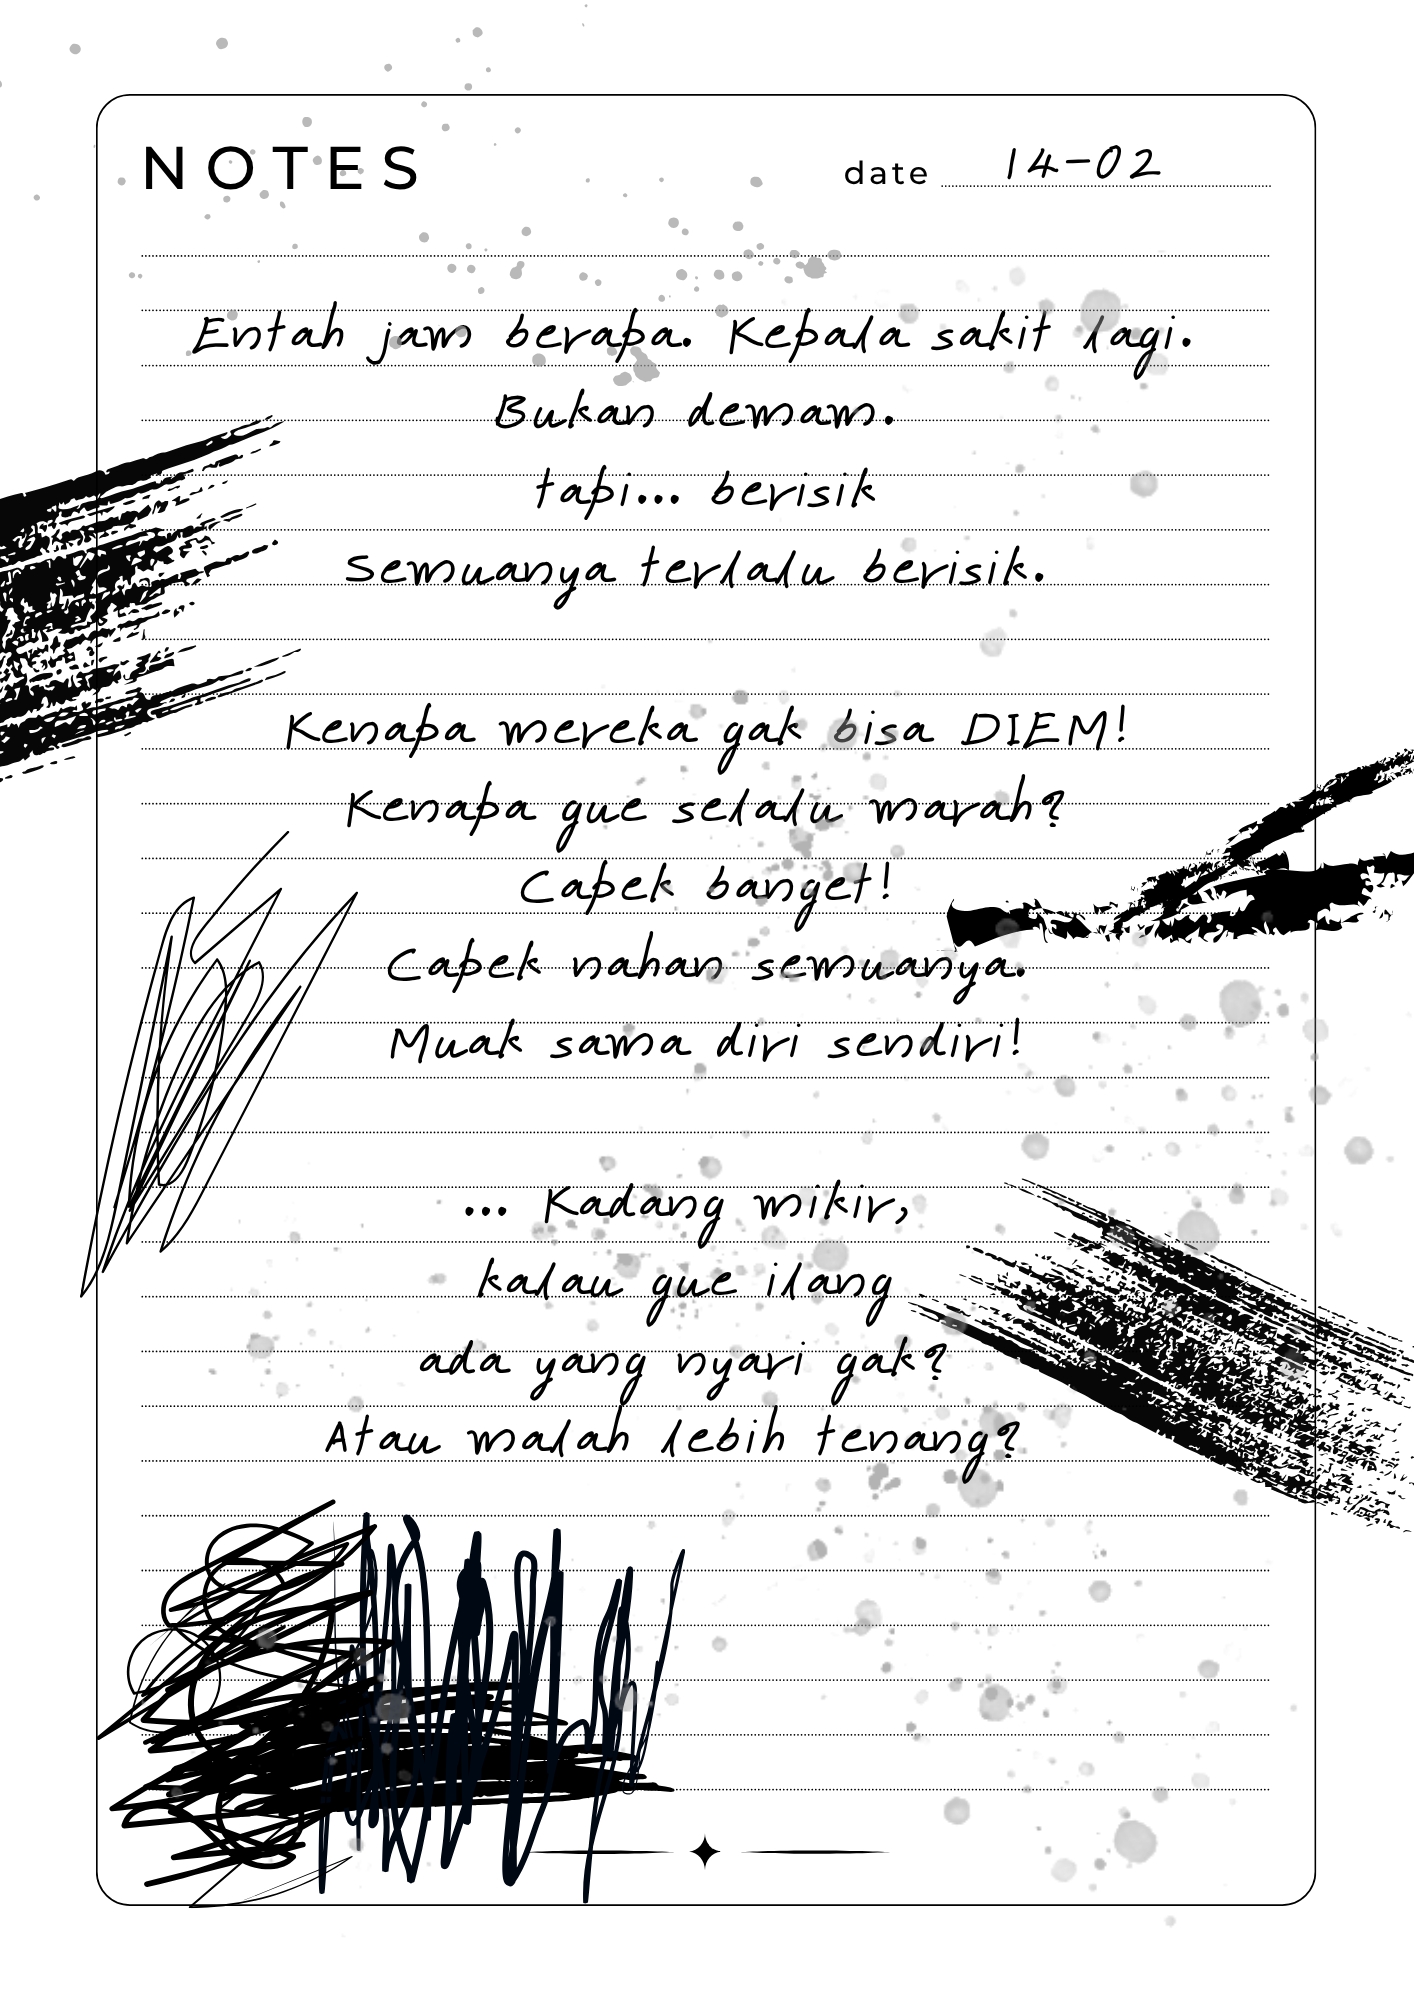 NOTES
date 14-02
Entah jam berapa. Kepala sakit lagi.
Bukan demam.
tapi... berisik
Semuanya terlalu berisik.
Kenapa mereka gak bisa DIEM!
Kenapa gue selalu marah?
Capek banget!
Capek nahan semuanya.
Muak sama diri sendiri!
... Kadang mikir,
kalau gue ilang
ada yang nyari gak?
Atau malah lebih tenang?